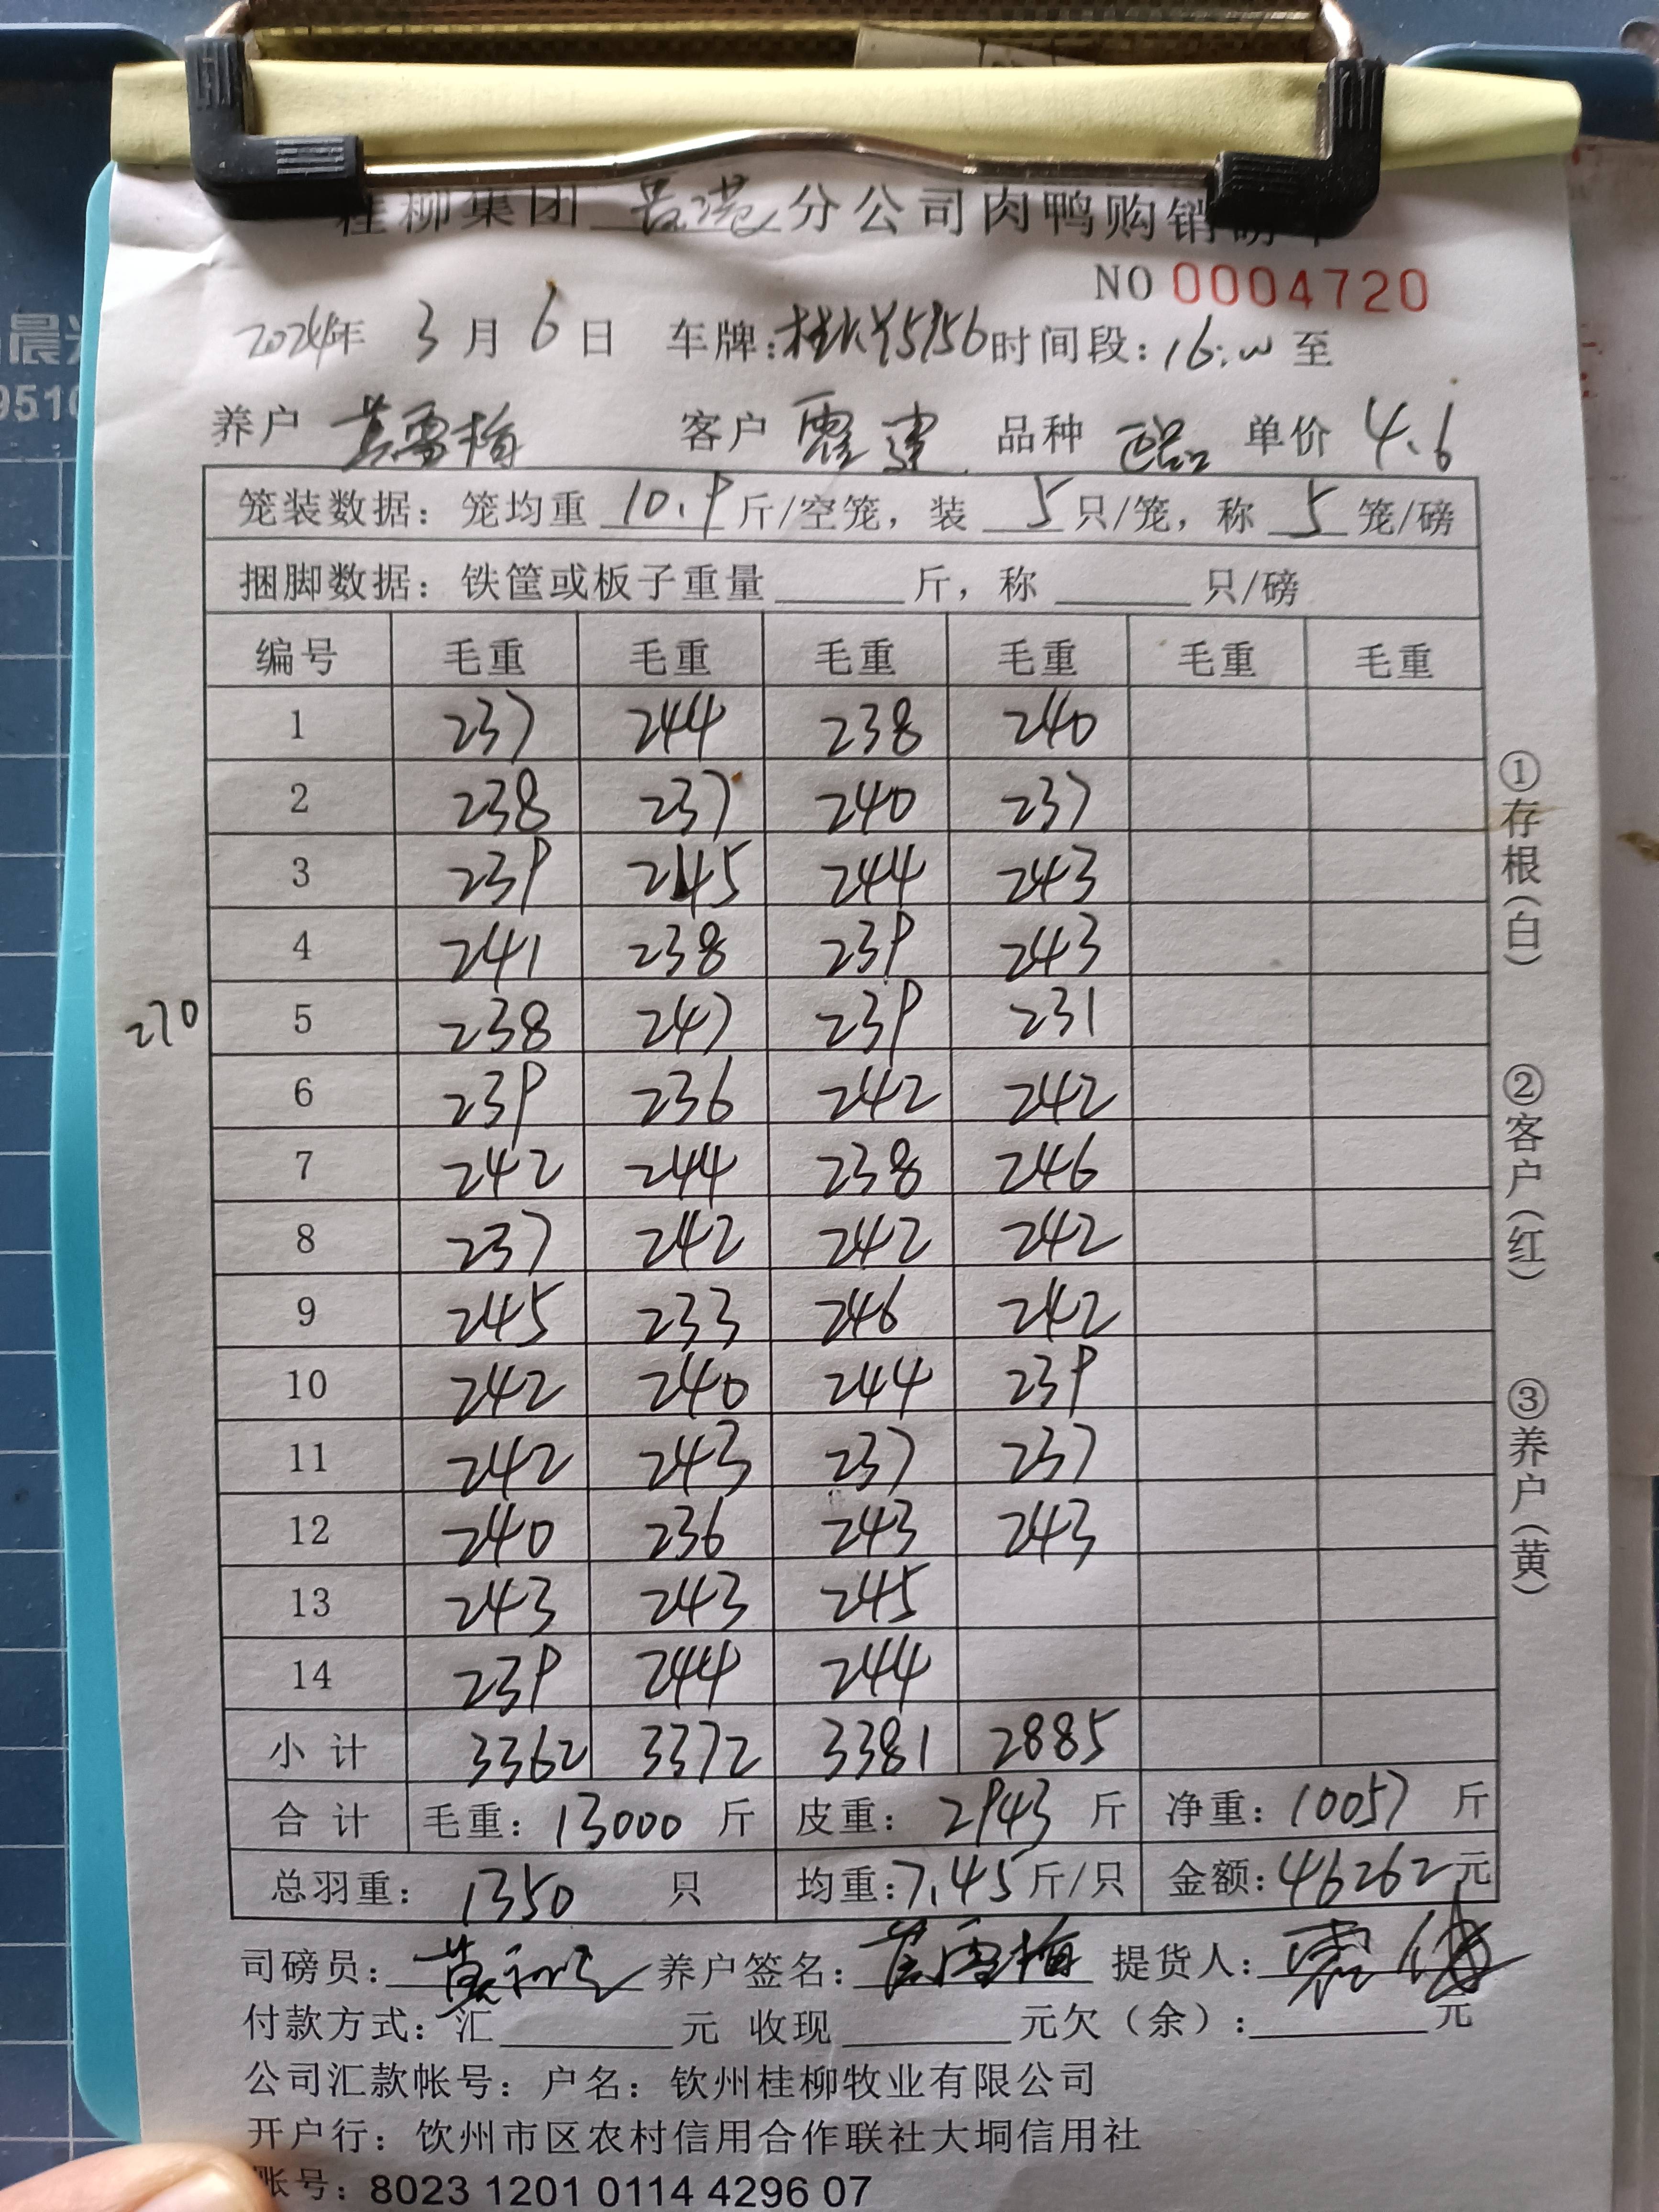 桂柳集团 分公司肉鸭购销磅单
NO 0004720
2024年 3月6日 车牌: 时间段:16:00 至
养户 客户 品种 单价 4.6
笼装数据:笼均重 10.9 斤/空笼,装 5 只/笼,称 5 笼/磅
捆脚数据:铁筐或板子重量 斤,称 只/磅
编号 毛重 毛重 毛重 毛重 毛重 毛重
1 237 244 238 240
2 238 237 240 237
3 239 245 244 243
4 241 238 239 243
270
5 238 247 239 231
6 239 236 242 242
7 242 244 238 246
8 237 242 242 242
9 245 233 246 242
10 242 240 244 239
11 242 243 237 237
12 240 236 243 243
13 243 243 245
14 239 244 244
小计 3362 3372 3381 2885
合计 毛重:13000 斤 皮重:2943 斤 净重:10057 斤
总羽重:1350 只 均重:7.45 斤/只 金额:46262元
①存根(白)
②客户(红)
③养户(黄)
司磅员: 养户签名: 提货人:
付款方式:汇 元 收现 元欠(余): 元
公司汇款帐号:户名:钦州桂柳牧业有限公司
开户行:钦州市区农村信用合作联社大垌信用社
账号:8023 1201 0114 4296 07
晨
9510